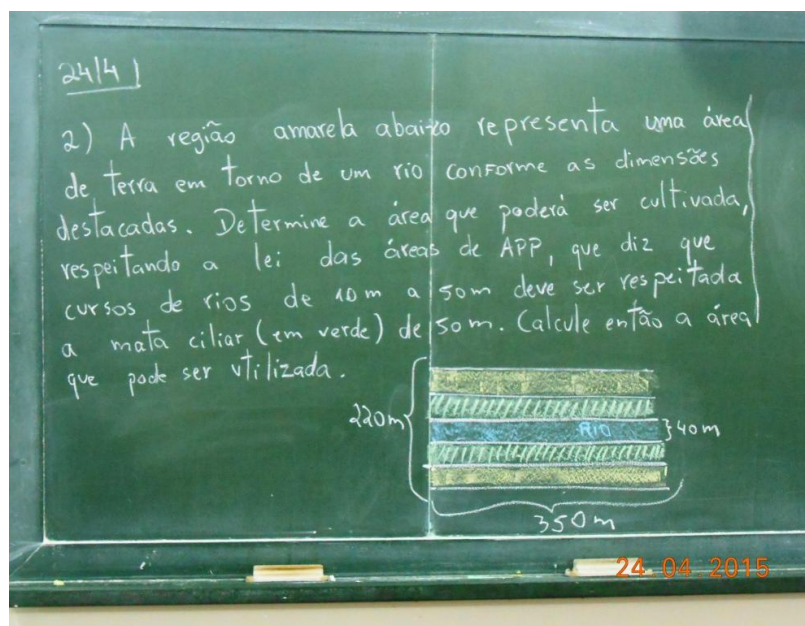 24/4
2) A região amarela abaixo representa uma área
de terra em torno de um rio conforme as dimensões
destacadas. Determine a área que poderá ser cultivada,
respeitando a lei das áreas de APP, que diz que
cursos de rios de 10m a 50m deve ser respeitada
a mata ciliar (em verde) de 50m. Calcule então a área
que pode ser utilizada.
220m
RIO
40m
350m
24.04.2015